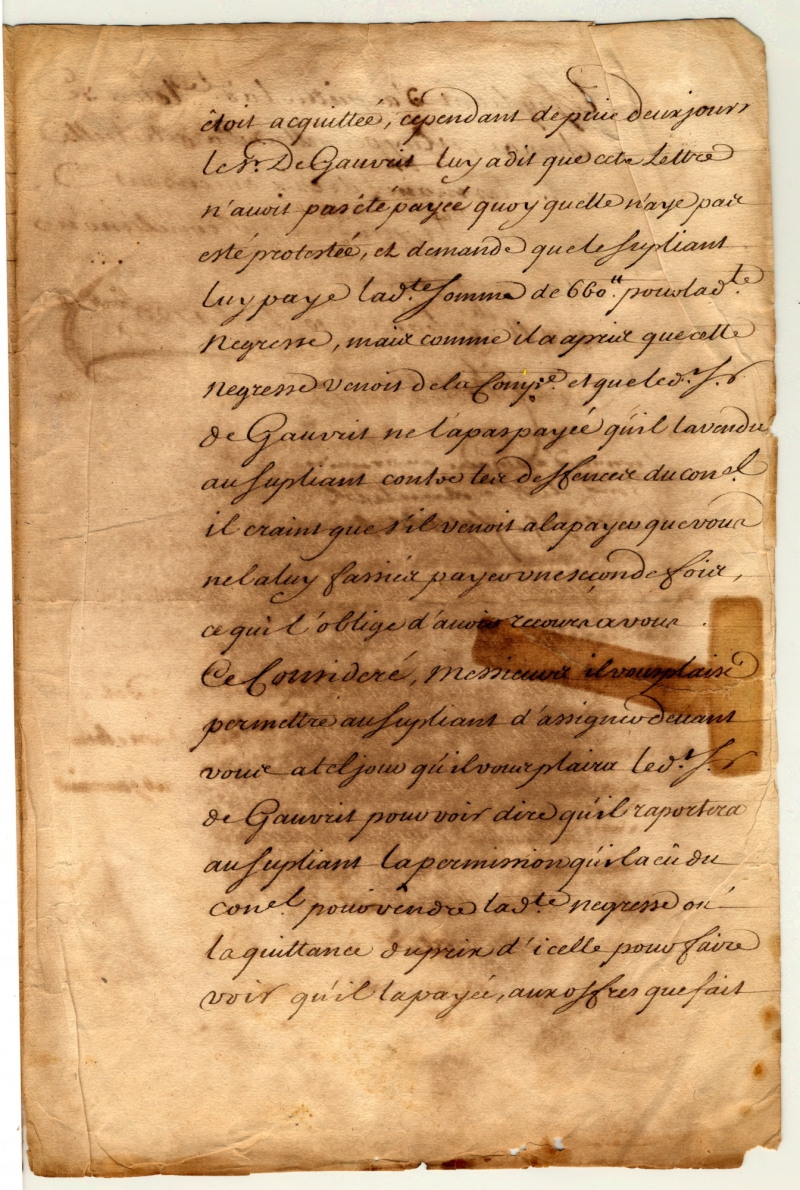 étoit acquittée, cependant depuis deux jours
le Sr. De Gauvrit luy a dit que cete Lettre
n'avoit pas été payeé quoy quelle n'aye pas
esté protestée, et demande que le supliant
luy paye lad.te somme de 660.tt pour lad.te
Negresse, mais comme il a apris que cette
negresse venoit de la Comp.e et que led. Sr.
de Gauvrit ne l'a pas payeé qu'il la vendu
au supliant contre les deffences du con.el
il craint que s'il venoit a la payer que vous
ne la luy fassiéz payer une seconde fois,
ce qui l'oblige d'avoir recours a vous.
Ce Consideré, Messieurs il vous plaise
permettre au supliant d'assigner devant
vous a tel jour qu'il vous plaira led. Sr.
de Gauvrit pour voir dire qu'il raportera
au supliant la permission qu'il a eû du
con.el pour vendre lad.te negresse ou
la quittance du prix d'icelle pour faire
voir qu'il la payeé, aux offres que fait